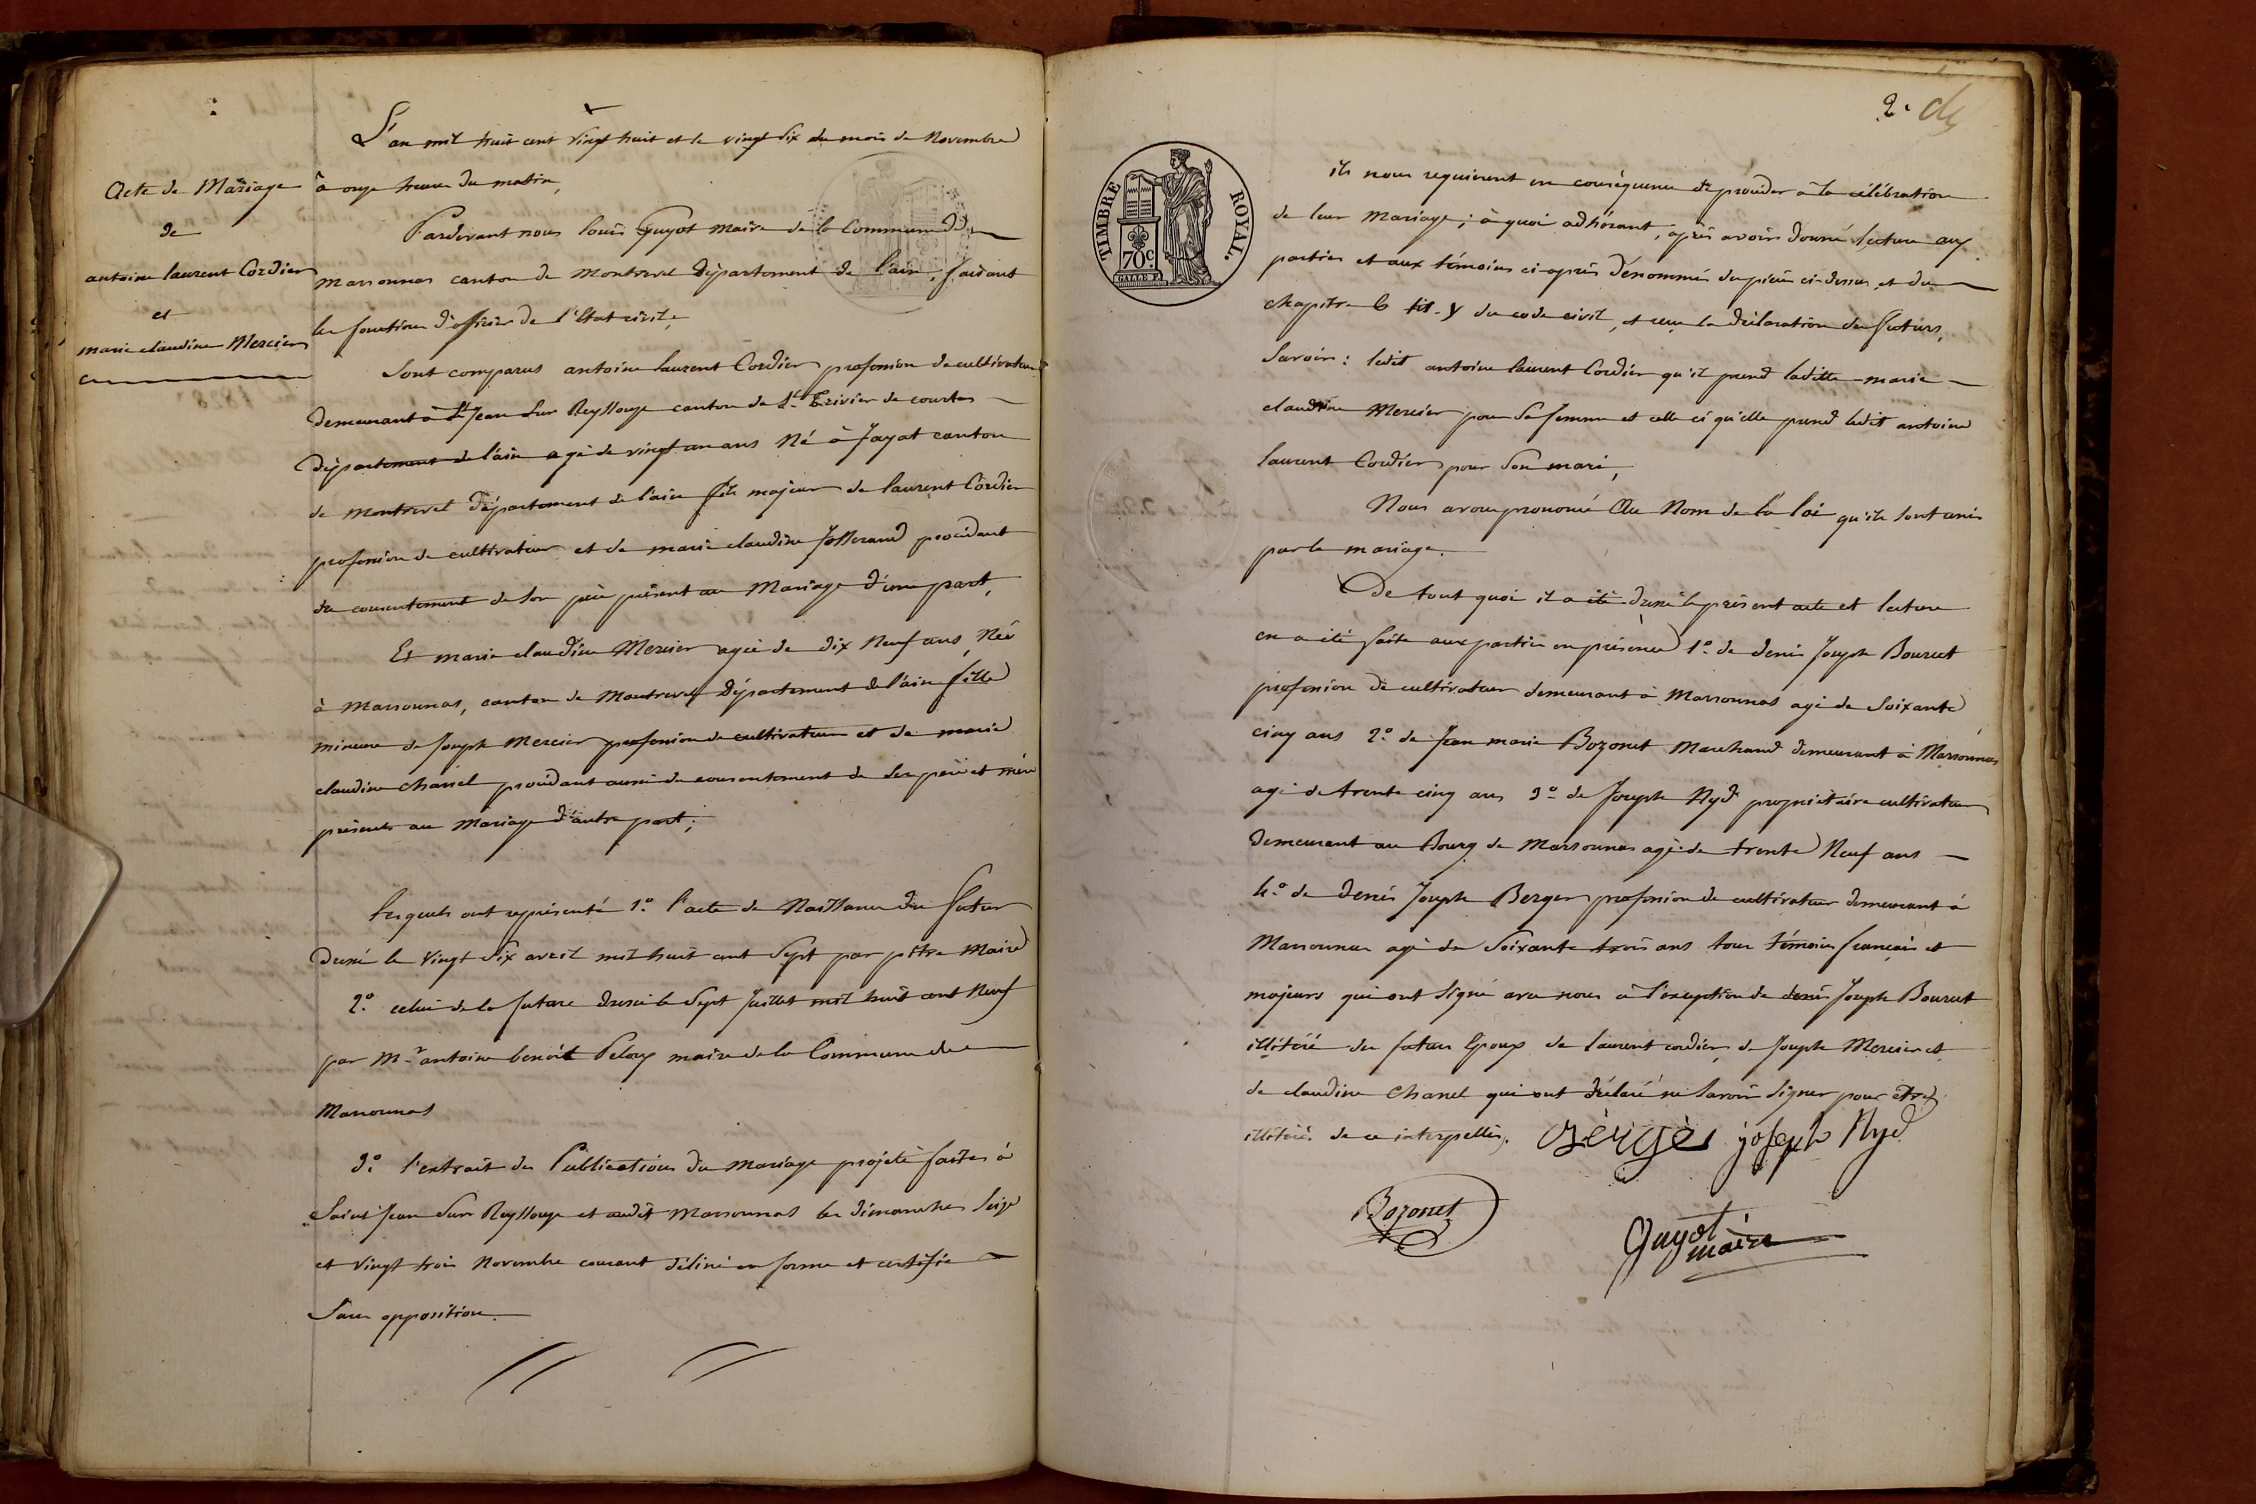 L'an mil huit cent vingt huit et le vingt six du mois de Novembre
Acte de Mariage
de
antoine laurent Cordier
et
marie claudine Mercier
à onze heure du matin,
Pardevant nous louis Guyot maire de la Commune de
marsonnas canton de montrevel département de l'ain, faisant
les fonctions d'officier de l'état civil,
Sont comparus antoine laurent Cordier profession de cultivateur
demeurant à St Jean Sur Reyssouze canton de St Trivier de courtes
département de l'ain agé de vingt un ans Né à Jayat canton
de montrevel département de l'ain fils majeur de laurent Cordier
profession de cultivateur et de marie claudine Josserand procédant
du consentement de son père présent au Mariage d'une part,
Et marie claudine Mercier agée de dix Neuf ans, Née
à marsonnas, canton de Montrevel département de l'ain fille
mineure de Joseph Mercier profession de cultivateur et de marie
claudine chanel procédant aussi du consentement de ses père et mère
présents au Mariage d'autre part;
lesquels ont représenté 1.° l'acte de Naissance du futur
dressé le vingt Six avril mil huit cent Sept par Maire
2.° celui de la future dressé le Sept Juillet mil huit cent Neuf
par M.r antoine benoit Peloux maire de la Commune de
Marsonnas
3.° l'extrait des Publications du mariage projeté faites à
Saint Jean Sur Reyssouze et audit Marsonnas les dimanches Seize
et vingt trois Novembre courant délivré en forme et certifié
Sans opposition.
2.
TIMBRE ROYAL.
70c
ils nous requièrent en conséquence de procéder à la célébration
de leur mariage; à quoi adhérant, après avoir donné lecture aux
parties et aux témoins ci-après dénommés des pièces ci-dessus, et du
chapitre 6 tit. V du code civil, et reçu la déclaration des futurs,
Savoir: ledit antoine laurent Cordier qu'il prend laditte marie
claudine Mercier pour Sa femme et celle ci qu'elle prend ledit antoine
laurent Cordier pour Son mari,
Nous avons prononcé Au Nom de la loi qu'ils Sont unis
par le mariage.
De tout quoi il a été dressé le présent acte et lecture
en a été faite aux parties en présence 1.° de denis Joseph Bourcet
profession de cultivateur demeurant à Marsonnas agé de Soixante
cinq ans 2.° de Jean marie Bozonet Marchand demeurant à Marsonnas
agé de trente cinq ans 3.° de Joseph Nyd propriétaire cultivateur
demeurant au Bourg de Marsonnas agé de trente Neuf ans
4.° de denis Joseph Berger profession de cultivateur demeurant à
Marsonnas agé de Soixante trois ans tous témoins français et
majeurs qui ont Signé avec nous à l'exception de denis Joseph Bourcet
illitéré des futurs Epoux de laurent cordier, de Joseph Mercier et
de claudine Chanel qui ont déclaré ne Savoir Signer pour etre
illitérés de ce interpellés. Bèrger joseph Nyd
Bozonet
Guyot
maire